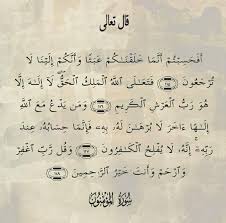 قال تعالى
أَفَحَسِبْتُمْ أَنَّمَا خَلَقْنَٰكُمْ عَبَثًا وَأَنَّكُمْ إِلَيْنَا لَا
تُرْجَعُونَ ١١٥ فَتَعَٰلَى ٱللَّهُ ٱلْمَلِكُ ٱلْحَقُّ لَآ إِلَٰهَ إِلَّا
هُوَ رَبُّ ٱلْعَرْشِ ٱلْكَرِيمِ ١١٦ وَمَن يَدْعُ مَعَ ٱللَّهِ
إِلَٰهًا ءَاخَرَ لَا بُرْهَٰنَ لَهُۥ بِهِۦ فَإِنَّمَا حِسَابُهُۥ عِندَ
رَبِّهِۦٓ إِنَّهُۥ لَا يُفْلِحُ ٱلْكَٰفِرُونَ ١١٧ وَقُل رَّبِّ ٱغْفِرْ
وَٱرْحَمْ وَأَنتَ خَيْرُ ٱلرَّٰحِمِينَ ١١٨
سُورَةُ المُؤْمِنُون